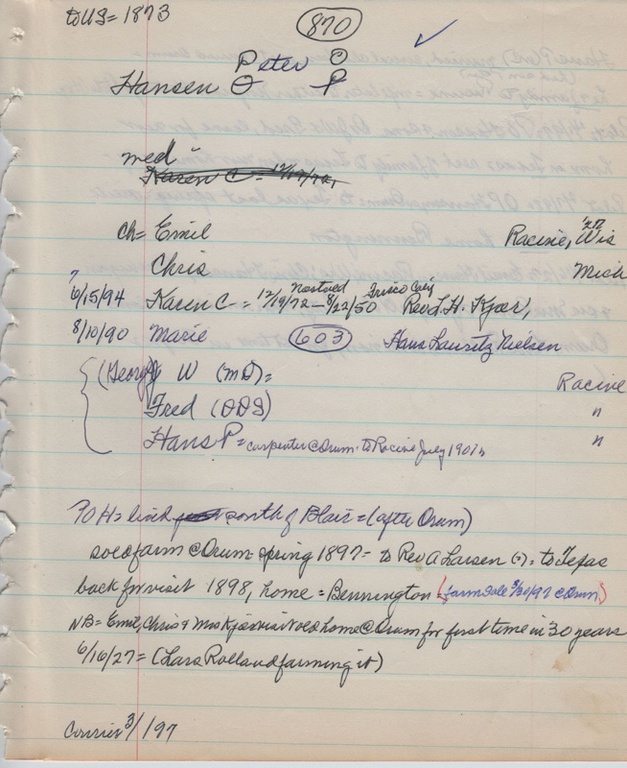 to US = 1873
870 ✓
Peter O
Hansen O P
med
Karen C = 12/19/72,
ch = Emil Racine, Wis '27
Chris Mich
? 6/15/94 Karen C = 12/19/72 Nosted — 8/22/50 Frisco Calif Rev J. H. Kjar,
8/10/90 Marie 603 Hans Lauritz Nielsen
(George) W (MD) = Racine
Fred (DDS) "
Hans P = carpenter @ Orum - to Racine July 1901
POH = lived south of Blair = (after Orum)
sold farm @ Orum - spring 1897 = to Rev A Larsen (?) = to Texas
back for visit 1898, home = Bennington = (farm sale 3/30/97 @ Orum)
NB = Emil, Chris & Mrs Kjar visit old home @ Orum for first time in 30 years
6/16/27 = (Lars Rolland farming it)
Courier 3/ /97